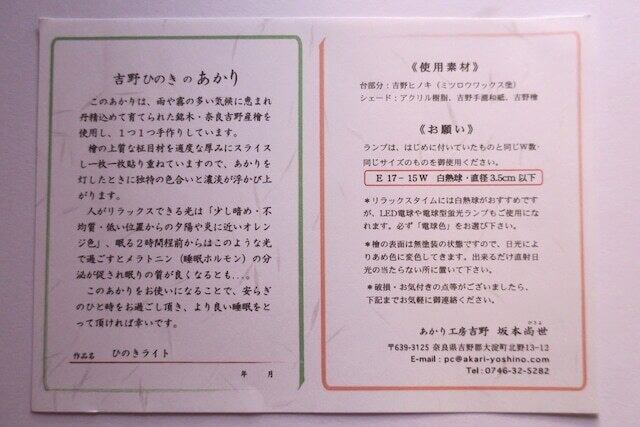 吉野ひのきのあかり
このあかりは、雨や霧の多い気候に恵まれ
丹精込めて育てられた銘木・奈良吉野産檜を
使用し、1つ1つ手作りしています。
檜の上質な柾目材を適度な厚みにスライス
し一枚一枚貼り重ねていますので、あかりを
灯したときに独特の色合いと濃淡が浮かび上
がります。
人がリラックスできる光は「少し暗め・不
均質・低い位置からの夕陽や炎に近いオレン
ジ色」、眠る2時間程前からはこのような光
で過ごすとメラトニン（睡眠ホルモン）の分
泌が促され眠りの質が良くなるとも...。
このあかりをお使いになることで、安らぎ
のひと時をお過ごし頂き、より良い睡眠をと
って頂ければ幸いです。
作品名 ひのきライト
年 月
《使用素材》
台部分：吉野ヒノキ（ミツロウワックス塗）
シェード：アクリル樹脂、吉野手漉和紙、吉野檜
《お願い》
ランプは、はじめに付いていたものと同じW数・
同じサイズのものを御使用ください。
E 17－15W 白熱球・直径3.5cm以下
＊リラックスタイムには白熱球がおすすめです
が、LED電球や電球型蛍光ランプもご使用にな
れます。必ず「電球色」をお選び下さい。
＊檜の表面は無塗装の状態ですので、日光によ
りあめ色に変色してきます。出来るだけ直射日
光の当たらない所に置いて下さい。
＊破損・お気付きの点等がございましたら、
下記までお気軽に御連絡ください。
あかり工房吉野 坂本尚世
ひさよ
〒639-3125 奈良県吉野郡大淀町北野13-12
E-mail : pc@akari-yoshino.com
Tel : 0746-32-5282